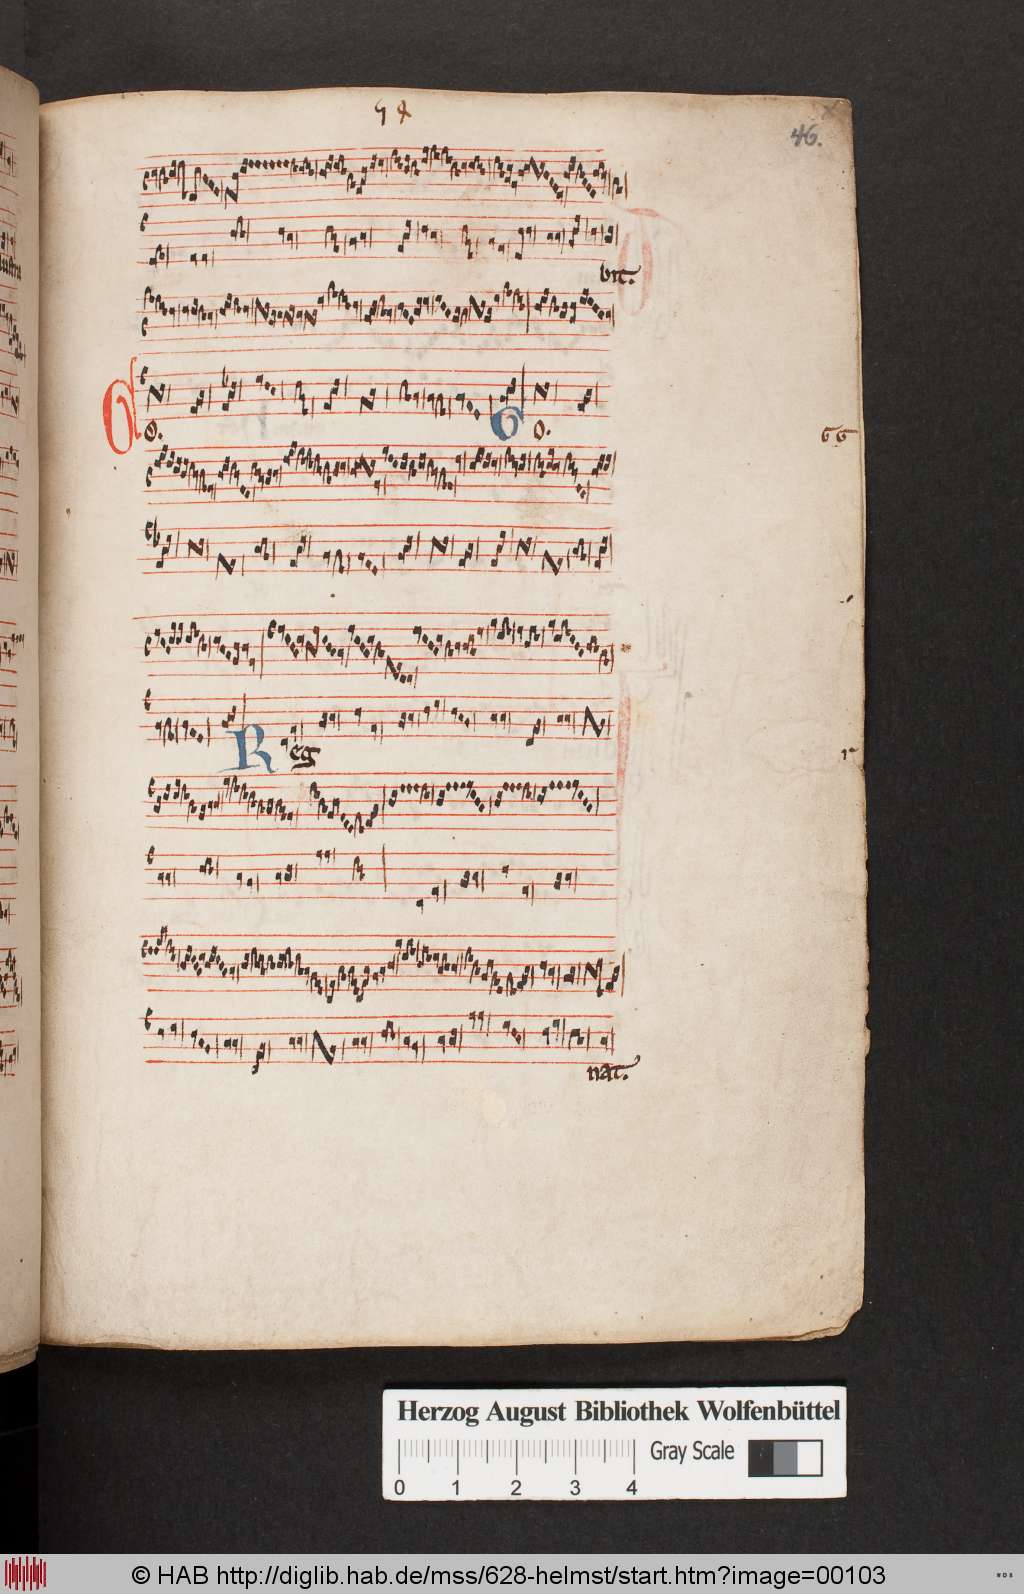 54
46.
bit.
O.
O.
66
Reg
nat.
Herzog August Bibliothek Wolfenbüttel
Gray Scale
0 1 2 3 4
© HAB http://diglib.hab.de/mss/628-helmst/start.htm?image=00103